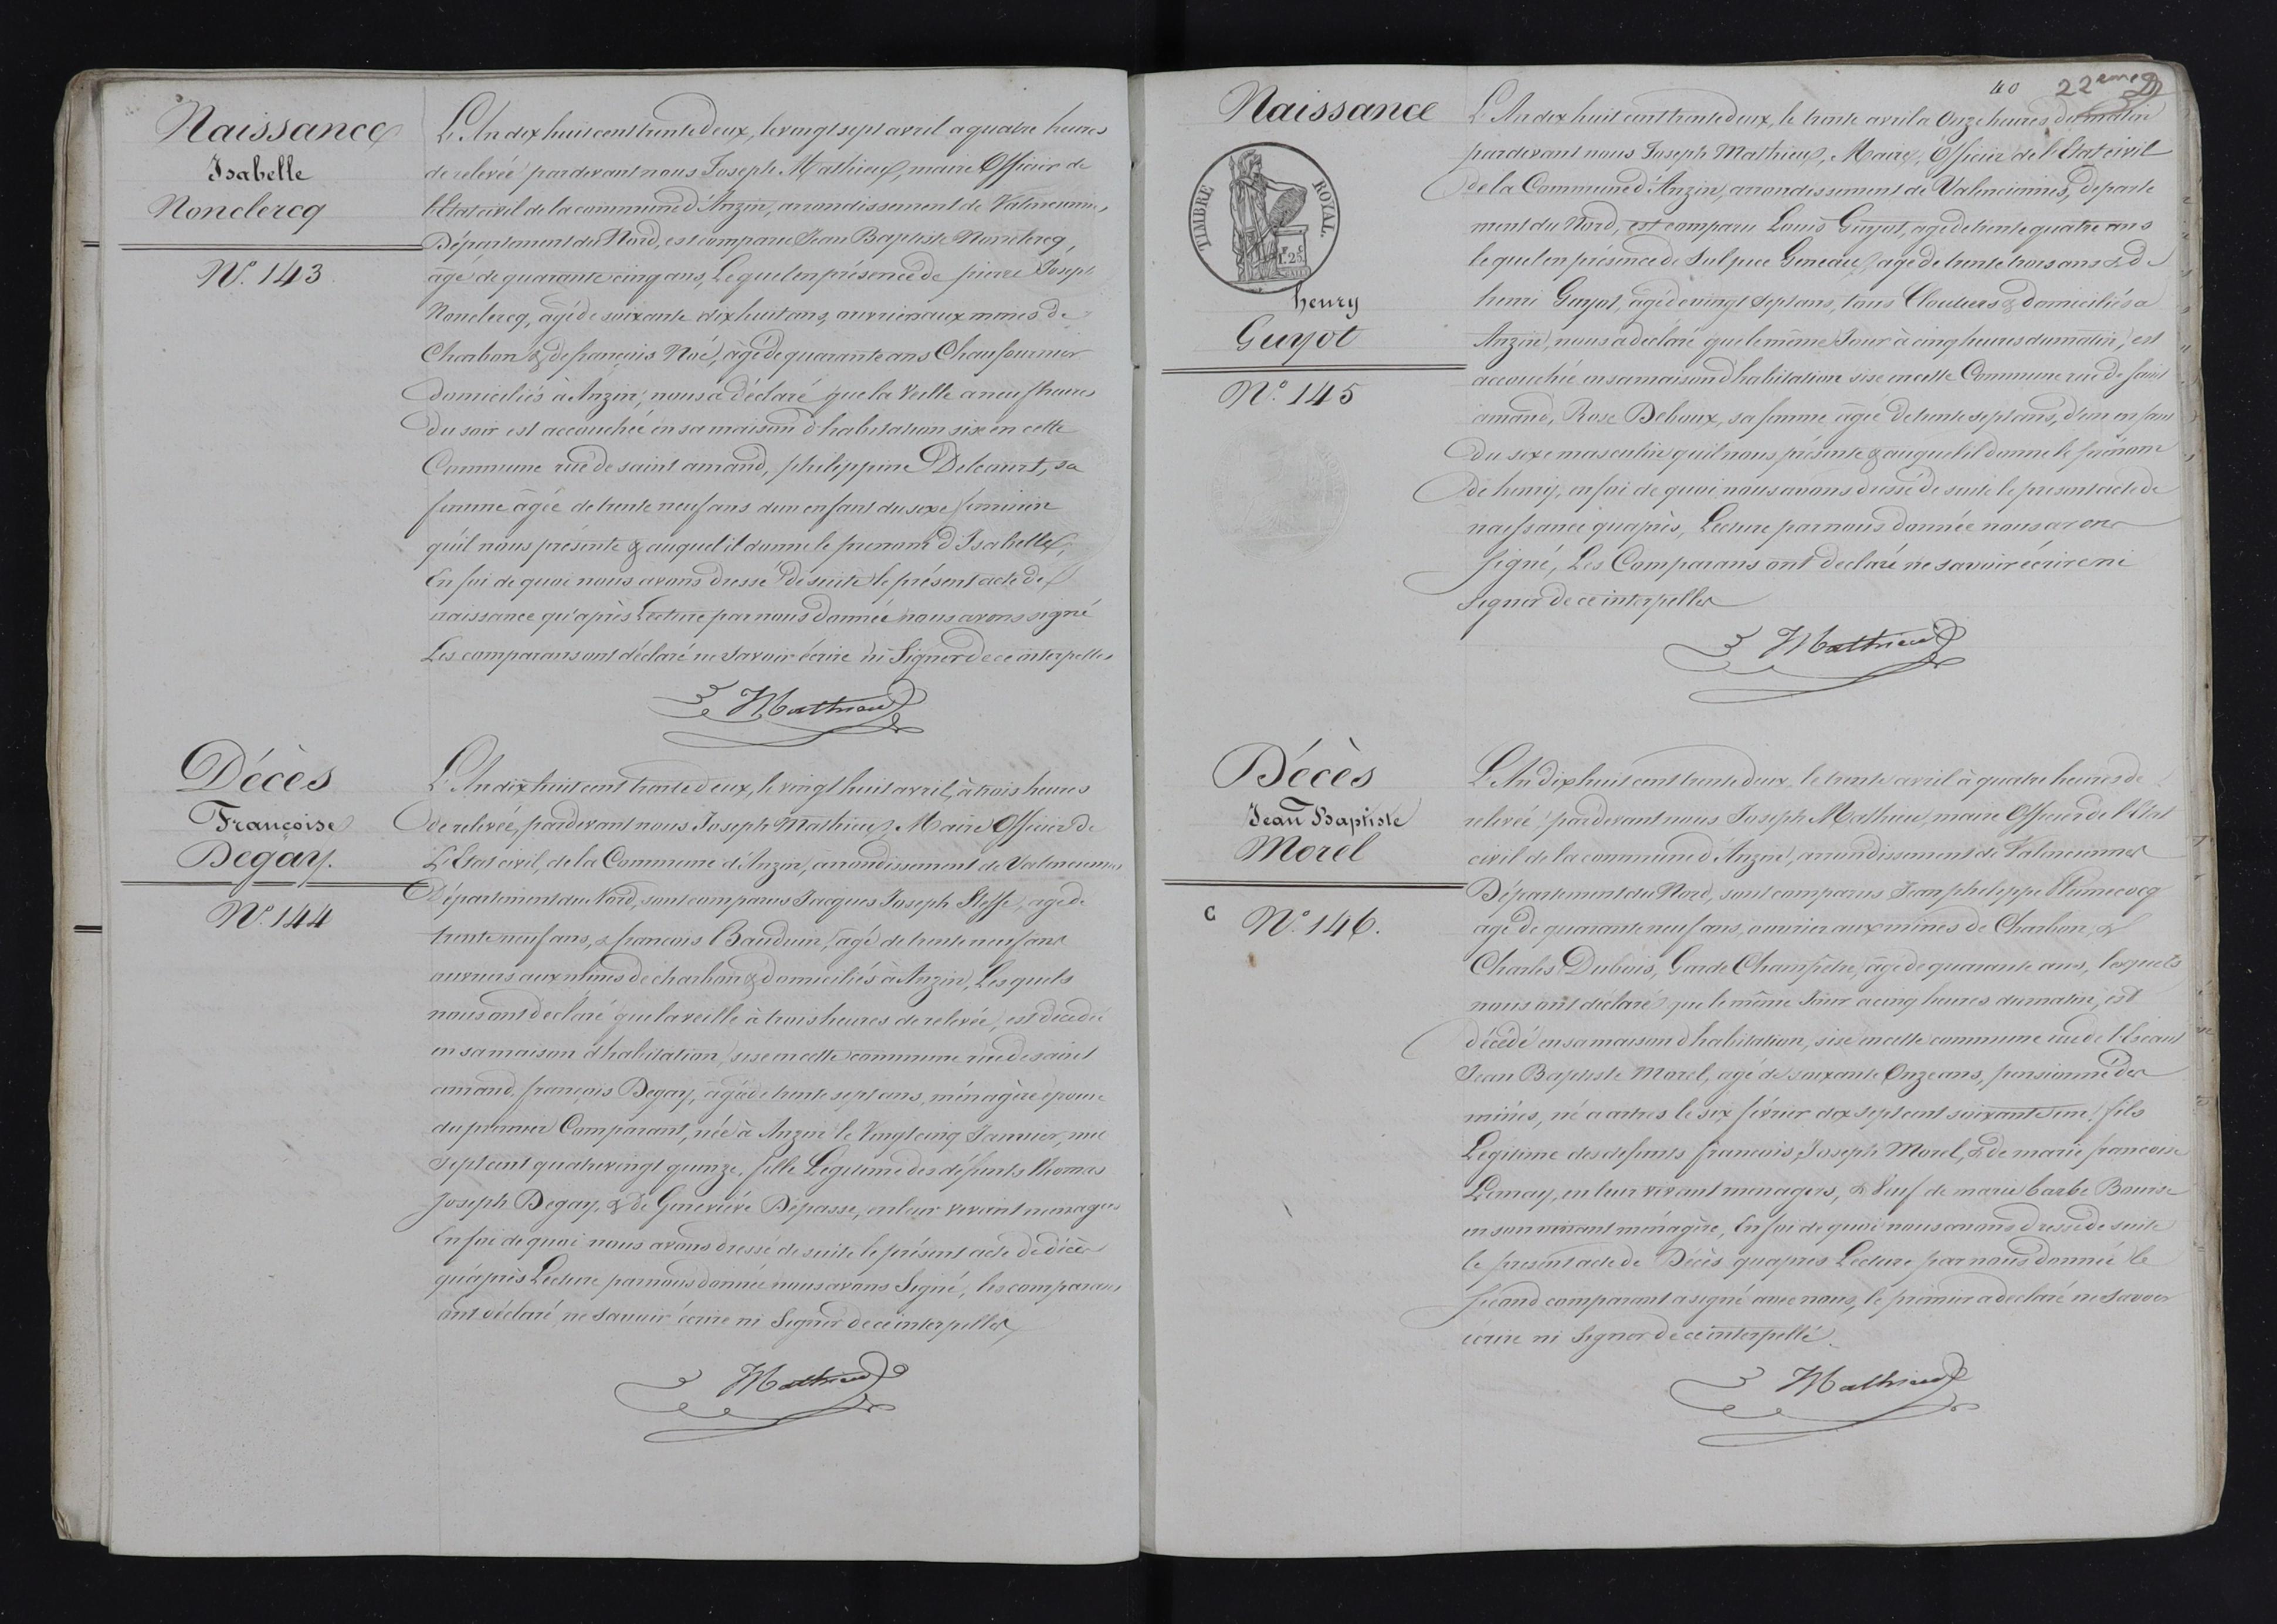 Naissance
Isabelle
Nonclercq
N.º 143
L'An dix huit cent trente deux, le vingt sept avril a quatre heures
de relevée pardevant nous Joseph Mathieu, maire Officier de
l'Etat civil de la commune d'Anzin, arrondissement de Valenciennes,
Département du Nord, est comparu Jean Baptiste Nonclercq,
âgé de quarante cinq ans, Lequel en présence de pierre Joseph
Nonclercq, âgé de soixante dix huit ans, ouvriers aux mines de
Charbon & de françois Noé, âgé de quarante ans Chaufournier
domiciliés à Anzin, nous a déclaré que la veille a neuf heures
du soir est accouchée en sa maison d'habitation sise en cette
Commune rue de saint amand, philippine Delcourt, sa
femme âgée de trente neuf ans d'un enfant du sexe féminin
qu'il nous présente & auquel il donne le prenom d'Isabelle,
En foi de quoi nous avons dressé de suite le présent acte de
naissance qu'après Lecture par nous donnée nous avons signé
Les comparans ont déclaré ne savoir écrire ni Signer de ce interpellés
J Mathieu
Décès
Françoise
Degay.
N.º 144
L'An dix huit cent trente deux, le vingt huit avril, à trois heures
de relevée, pardevant nous Joseph Mathieu, Maire Officier de
L'Etat civil, de la Commune d'Anzin, arrondissement de Valenciennes
Département du Nord, sont comparus Jacques Joseph, âgé de
trente neuf ans, & francois Bauduin, âgé de trente neuf ans
ouvriers aux mines de charbon & domiciliés à Anzin, Lesquels
nous ont déclaré que la veille à trois heures de relevée, est décédée
en sa maison d'habitation, sise en cette commune rue de saint
amand, françois Degay, âgée de trente sept ans, ménagère épouse
du premier Comparant, née à Anzin le Vingt cinq Janvier, mil
Sept cent quatrevingt quinze, fille Légitime des défunts Thomas
Joseph Degay, & de Geneviève Dépasse, en leur vivant menagers
En foi de quoi nous avons dressé de suite le présent acte de décès
qu'après Lecture par nous donnée nous avons Signé, les comparans
ont déclaré ne savoir écrire ni Signer de ce interpellés
J Mathieu
40 22ème
Naissance
TIMBRE ROYAL.
F. C
1.25
henry
Guyot
N.º 145
L'An dix huit cent trente deux, le trente avril a Onze heures du matin
pardevant nous Joseph Mathieu, Maire, Officier de l'Etat civil
de la Commune d'Anzin, arrondissement de Valenciennes, departe
ment du Nord, est comparu Louis Guyot, agé de trente quatre ans
lequel en présence de Sulpice Geneau, agé de trente trois ans & de
henri Guyot, âgé de vingt sept ans, tous Cloutiers & domiciliés a
Anzin, nous a déclaré que le même Jour à cinq heures du matin, est
accouchée en sa maison d'habitation sise en cette Commune rue de saint
amand, Rose Deboux, sa femme âgée de trente sept ans, d'un enfant
du sexe masculin qu'il nous présente & auquel il donne le prénom
de henry, en foi de quoi nous avons dressé de suite le present acte de
naissance qu'après, Lecture par nous donnée nous avons
signé, Les Comparans ont declaré ne savoir écrire ni
signer de ce interpellés
J Mathieu
Décès
Jean Baptiste
Morel
C N.º 146.
L'An dix huit cent trente deux, le trente avril à quatre heures de
relevée, pardevant nous Joseph Mathieu, maire Officier de l'Etat
civil de la commune d'Anzin, arrondissement de Valenciennes
Département du Nord, sont comparus Jean philippe
agé de quarante neuf ans, ouvrier aux mines de Charbon, &
Charles Dubois, Garde Champêtre, âgé de quarante ans, lesquels
nous ont déclaré que le même Jour a cinq heures du matin, est
décédé en sa maison d'habitation, sise en cette commune rue de l'Escaut
Jean Baptiste Morel, agé de soixante Onze ans, pensionné des
mines, né a artres le six février dix sept cent soixante un, fils
Légitime des défunts francois Joseph Morel, & de marie francoise
Lemay, en leur vivant menagers, & Veuf de marie barbe Bourse
en son vivant ménagère, En foi de quoi nous avons dressé de suite
le present acte de Décès qu'après Lecture par nous donnée le
second comparant a signé avec nous, le premier a declaré ne savoir
écrire ni Signer de ce interpellé.
J Mathieu